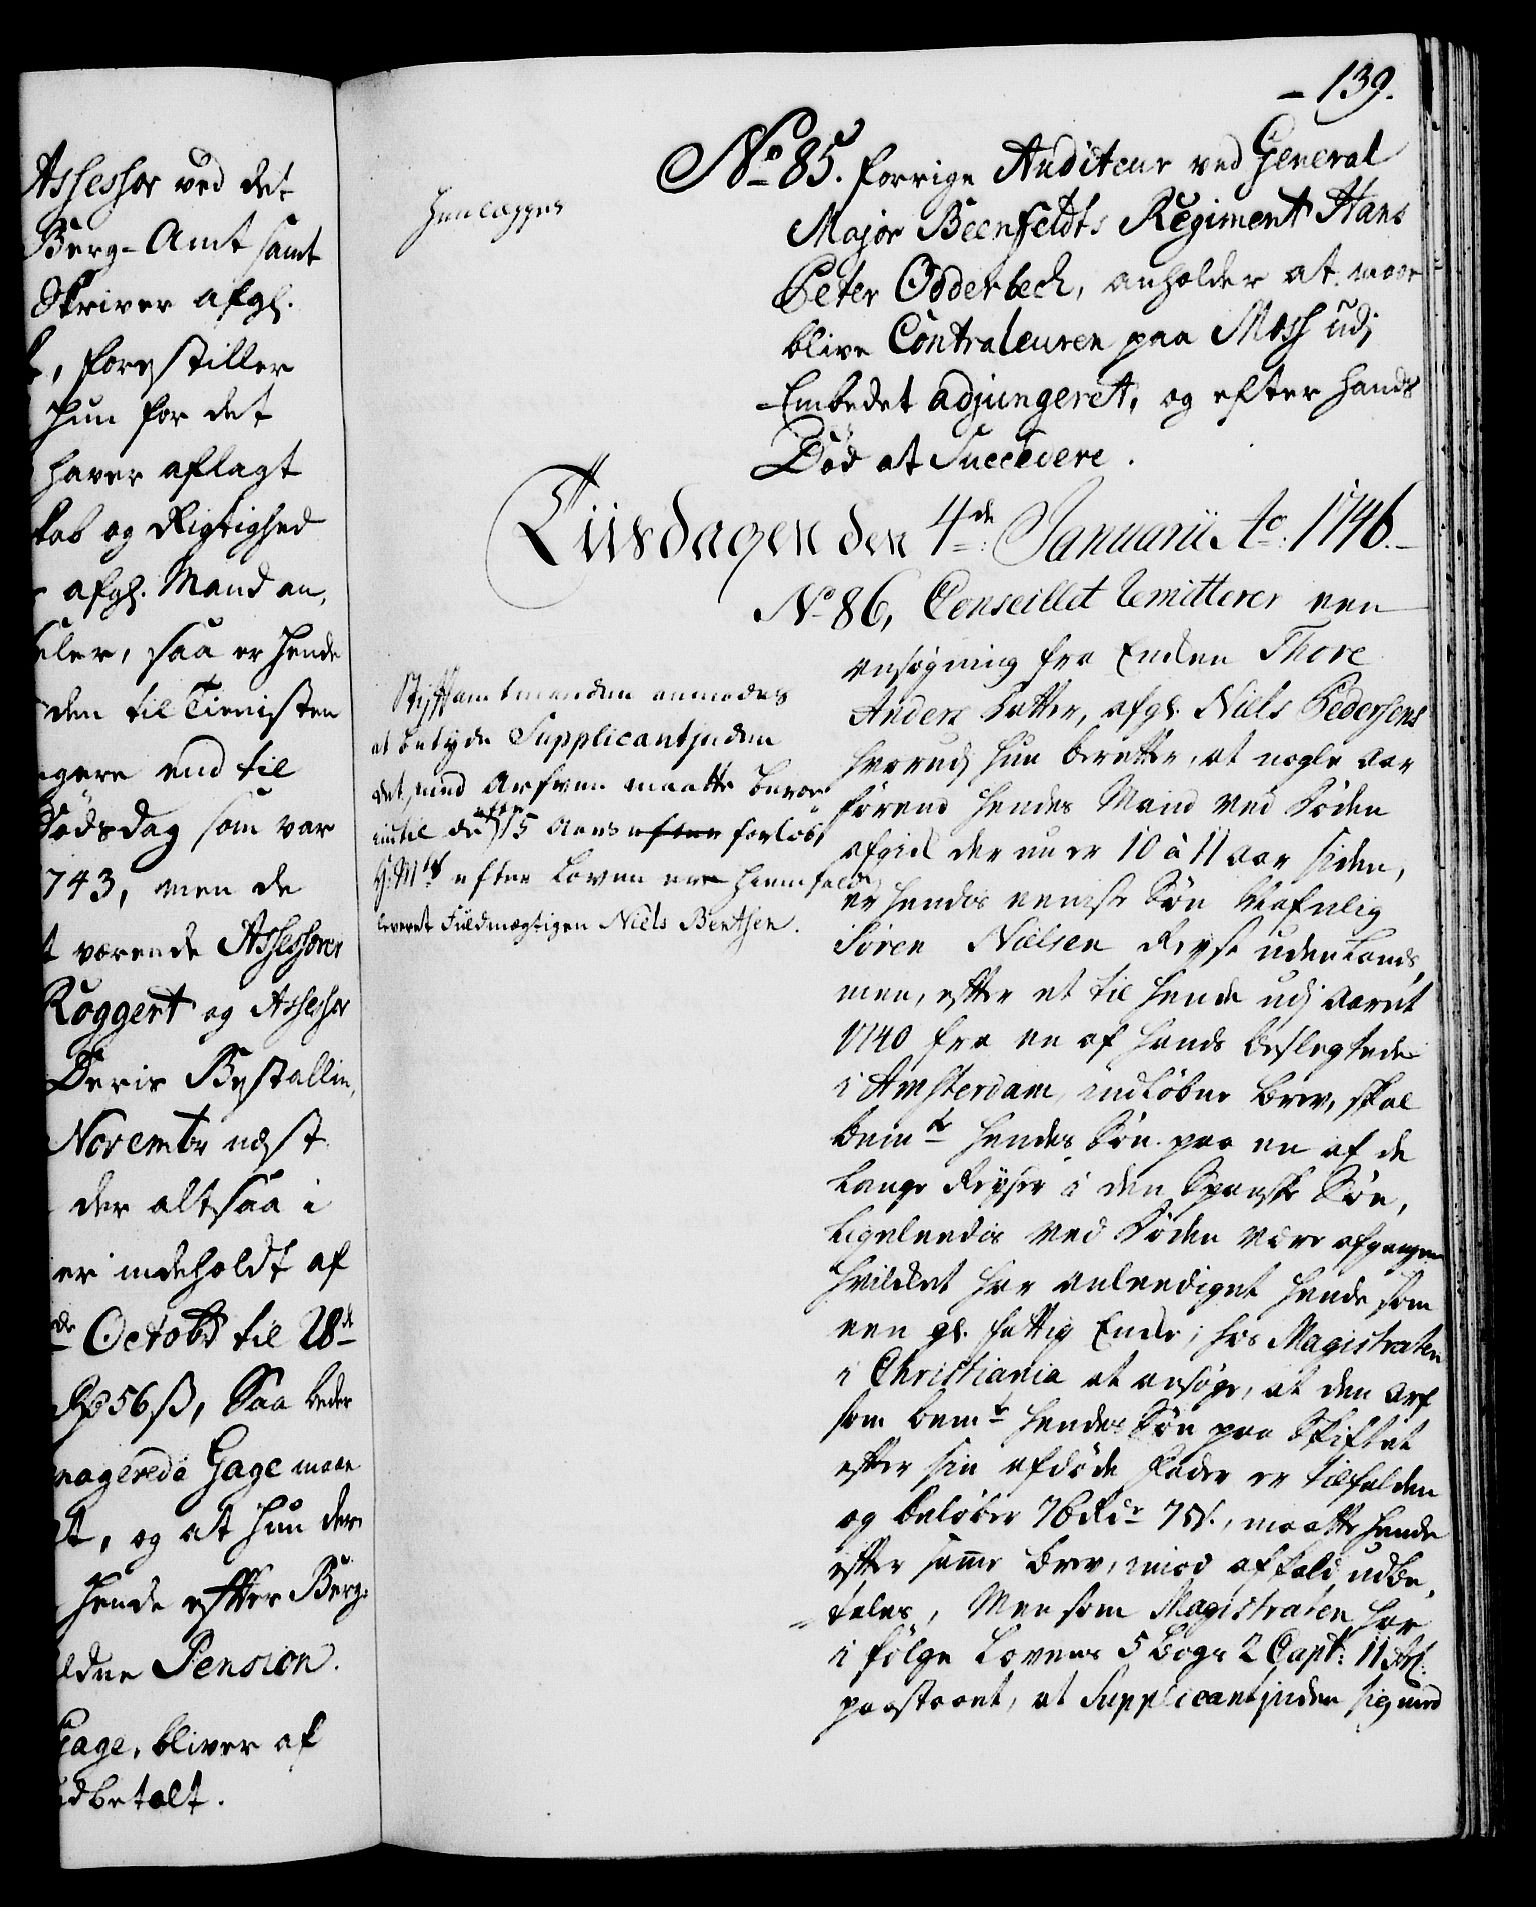 Assessor ved det
Berg-Amt samt
Skriver afgl.
, forestiller
hun for det
haver aflagt
skab og Rigtighed
afgl. Mand an,
eler, saa er hende
den til Tienisten
gere end til
Dødsdag som var
743, men de
t værende Assessorer
Roggert og Assessor
Deris Bestallin,
Novembr næst
der altsaa i
er indeholdt af
de Octobr til 28de
Rd 56 ß, Saa beder
Gage maae
t, og at hun der
hende effter Berg-
ldne Pension.
Gage, bliver af
udbetalt.
- 139.
No 85. forrige Auditeur ved General
Major Beenfeldts Regiment Hans
Peter Odderbech, anholder at maae
blive Contraleuren paa Moss udj
Embedet adjungeret, og efter hands
Død at Succedere.
Henlægges
Tiisdagen den 4de Januarii Ao 1746.
No 86, Conseillet remitterer een
ansøgning fra Encken Thore
Anders Datter, afgl. Niels Pedersens
hvorudj hun beretter, at nogle aar
førend hendes Mand ved Døden
afgik der nu er 10 à 11 aar siden,
er hendes eeniste Søn Nafnlig
Søren Nielsen Reyst udenlands,
men, efter et til hende udj Aaret
1740 fra en af hands beslegtede
i Amsterdam, indløbne brev, skal
bemte hendes Søn paa en af de
lange Reyser i den Spanske Søe,
ligeleedis ved Døden være afgangen
hvilket har anleediget hende som
een gl. fattig Encke, hos Magistraten
i Christiania at ansøge, at den Arf
som bemte hendes Søn paa Skiftet
efter sin afdøde Fader er tilfalden
og beløber 76 Rdr 7 ß., maatte hende
efter samme brev, imod affald udbe-
tales, Men som Magistraten har
i følge Lovens 5 Bogs 2 Capt: 11 Art:
paastaaet, at Supplicantinden sig med
Stiftamtmanden anmodes
at betyde Supplicantinden
det, med Arfven maatte beroe
indtil de efter 15 Aars efter forløb
H: Mts efter Loven er hiemfalden
leveret Fuldmægtigen Niels Bentsen.